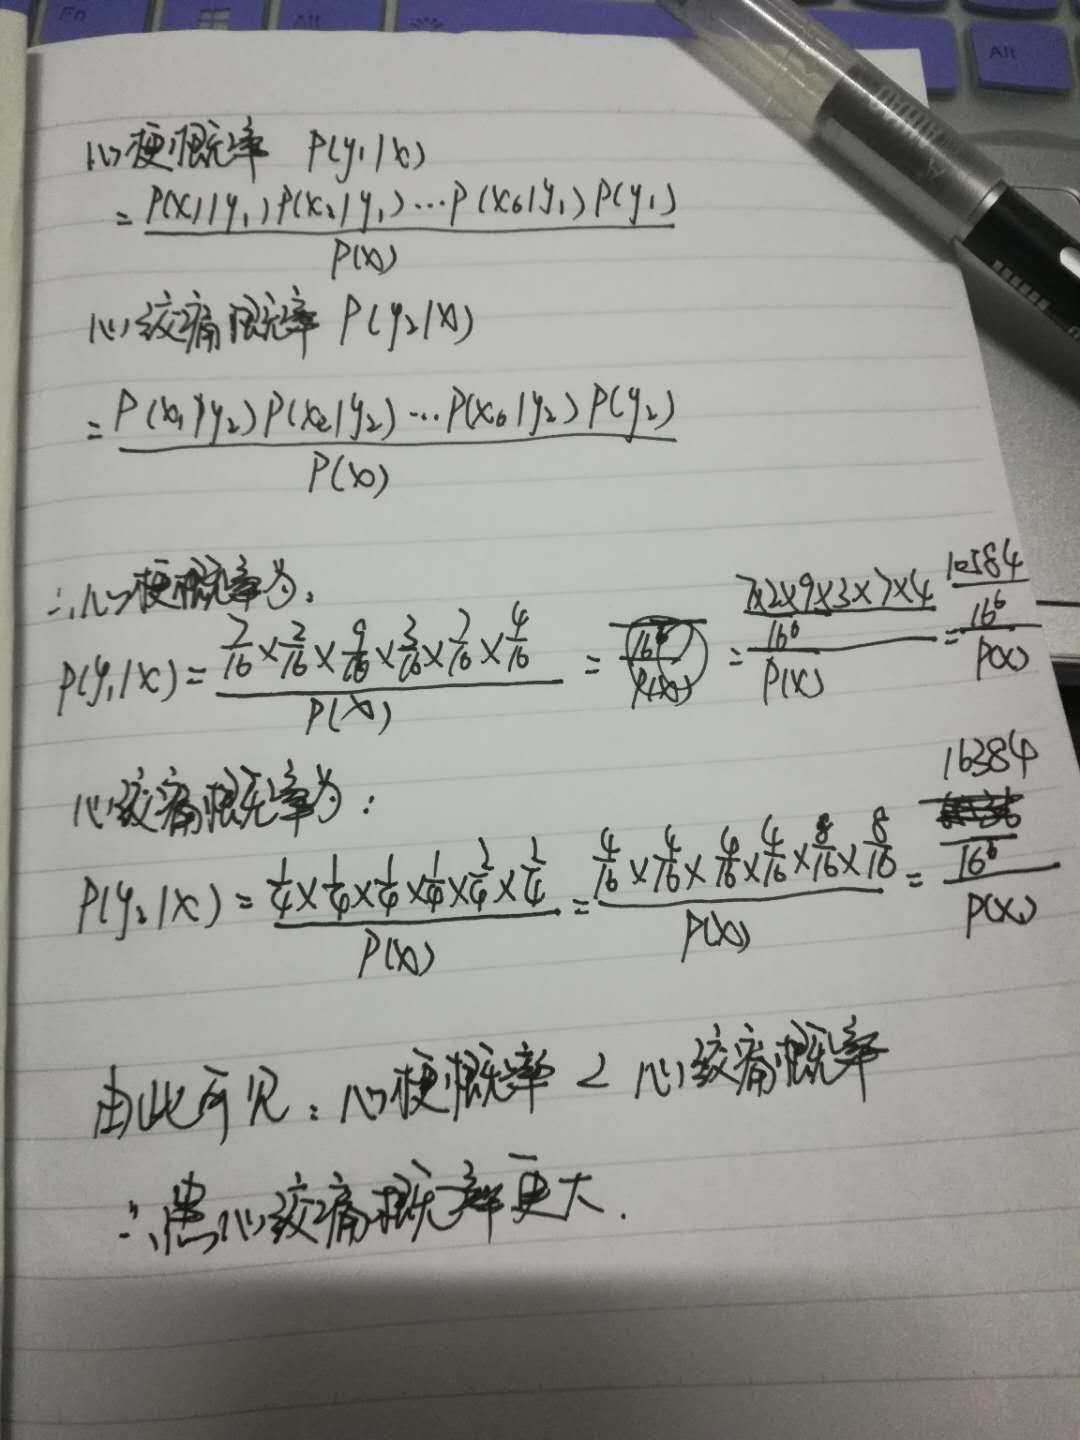 Fn
Alt
Alt
心梗概率 P(y₁|x)
= P(x₁|y₁)P(x₂|y₁)…P(x₆|y₁)P(y₁) / P(x)
心绞痛概率 P(y₂|x)
= P(x₁|y₂)P(x₂|y₂)…P(x₆|y₂)P(y₂) / P(x)
∴心梗概率为:
P(y₁|x) = 7/16 × 2/16 × 9/16 × 3/16 × 7/16 × 4/16 / P(x) = 7×2×9×3×7×4 / 16⁶ / P(x) = 10584 / 16⁶ / P(x)
心绞痛概率为:
P(y₂|x) = 1/4 × 1/4 × 1/4 × 1/4 × 2/4 × 2/4 / P(x) = 4/16 × 4/16 × 4/16 × 4/16 × 8/16 × 8/16 / P(x) = 16384 / 16⁶ / P(x)
由此可见:心梗概率 < 心绞痛概率
∴患心绞痛概率更大.